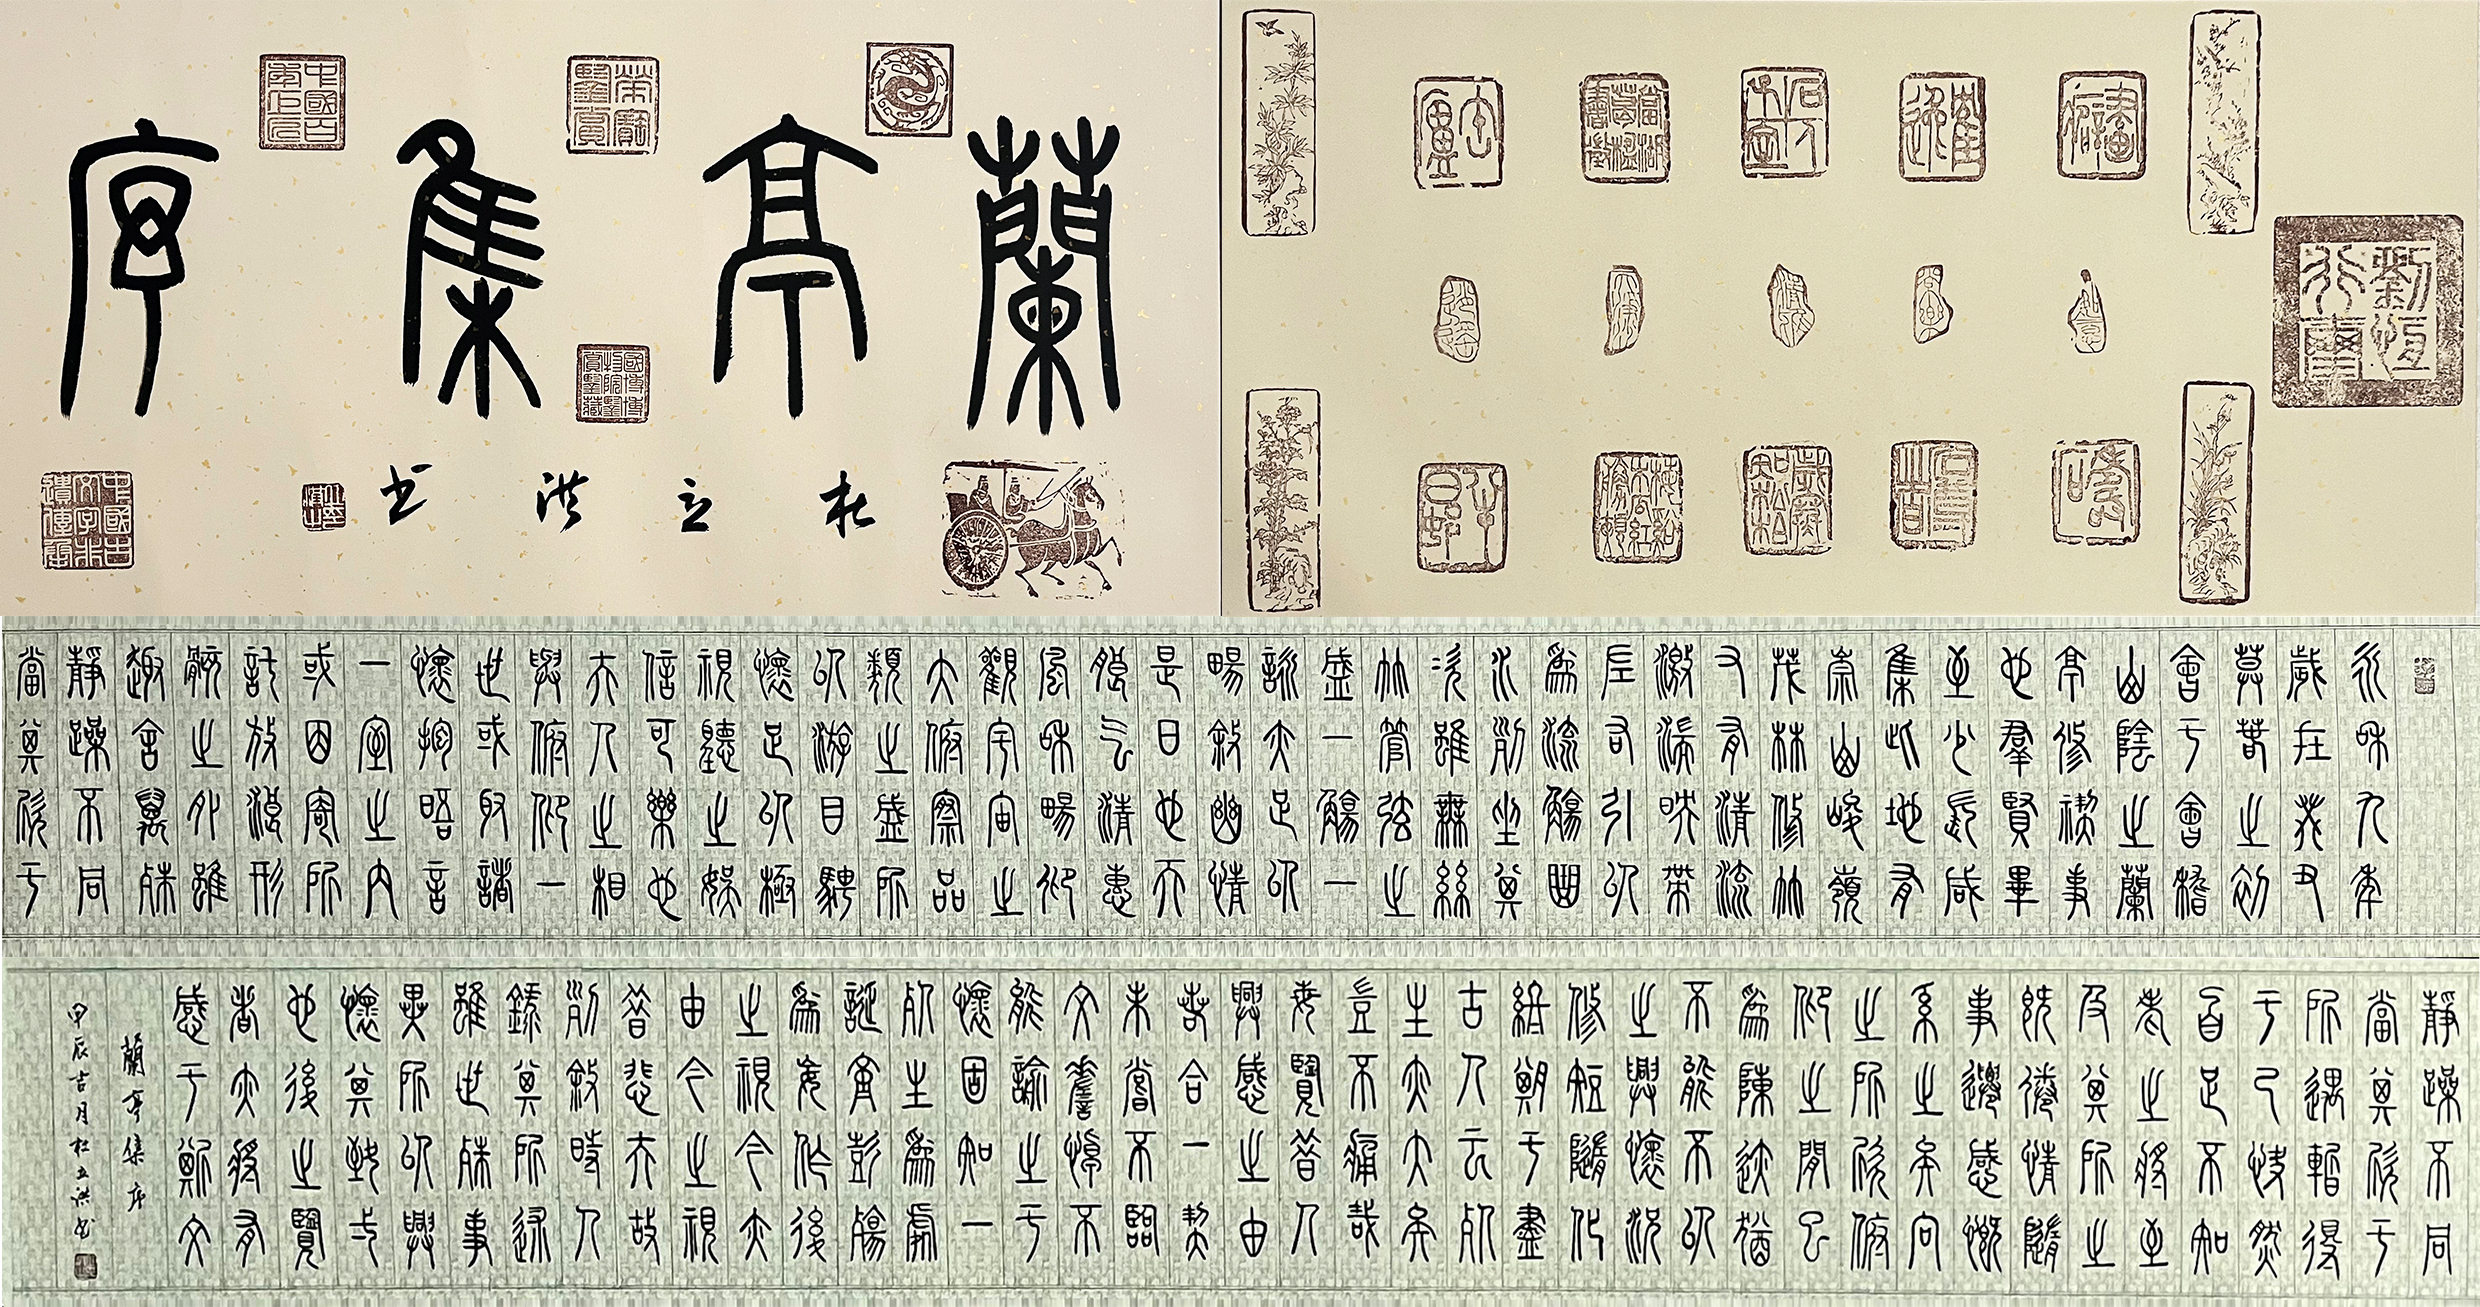 蘭亭集序
杜立洪书
永和九年
歲在癸丑
暮春之初
會于會稽
山陰之蘭
亭修禊事
也羣賢畢
至少長咸
集此地有
崇山峻嶺
茂林修竹
又有清流
激湍映帶
左右引以
為流觴曲
水列坐其
次雖無絲
竹管弦之
盛一觴一
詠亦足以
暢敘幽情
是日也天
朗气清惠
風和暢仰
觀宇宙之
大俯察品
類之盛所
以游目騁
懷足以極
視聽之娛
信可樂也
夫人之相
與俯仰一
世或取諸
懷抱晤言
一室之內
或因寄所
託放浪形
骸之外雖
趣舍萬殊
靜躁不同
當其欣于
靜躁不同
當其欣于
所遇暫得
于己快然
自足不知
老之將至
及其所之
既倦情隨
事遷感慨
系之矣向
之所欣俯
仰之間已
為陳迹猶
不能不以
之興懷況
修短隨化
終期于盡
古人云死
生亦大矣
豈不痛哉
每覽昔人
興感之由
若合一契
未嘗不臨
文嗟悼不
能諭之于
懷固知一
死生為虛
誕齊彭殤
為妄作後
之視今亦
由今之視
昔悲夫故
列敘時人
錄其所述
雖世殊事
異所以興
懷其致一
也後之覽
者亦將有
感于斯文
蘭亭集序
甲辰吉月杜立洪书